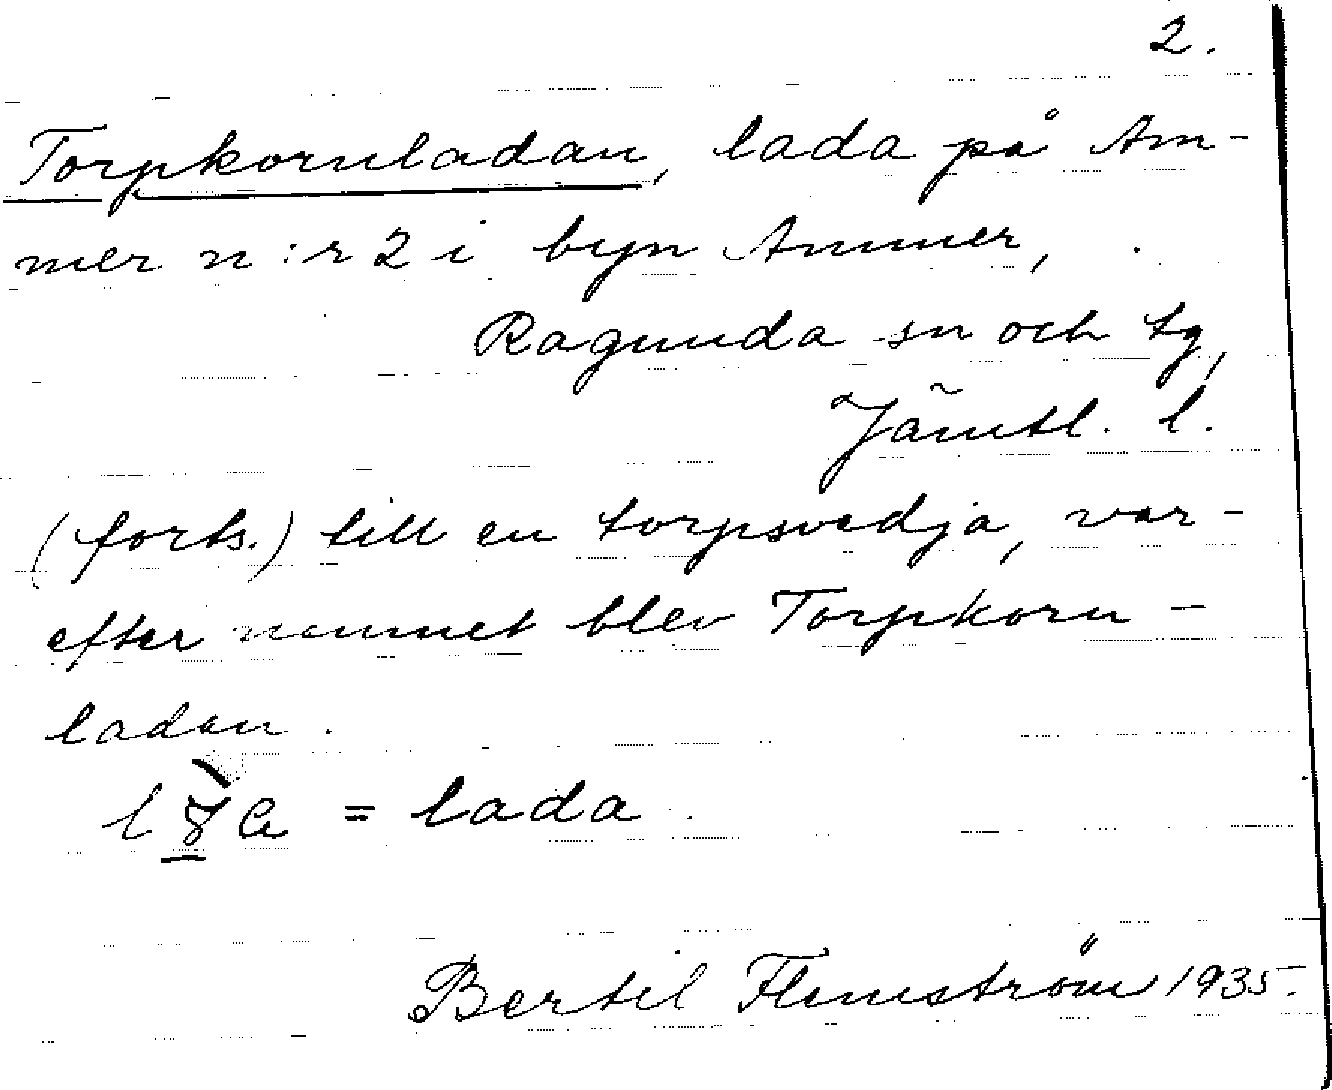 2.
Torpkornladan, lada på Am-
mer n:r 2 i byn Ammer,
Ragunda sn och tg,
Jämtl. l.
(forts.) till en torpsvedja, var-
efter namnet blev Torpkorn-
ladan.
= lada.
Bertil Flemström 1935.